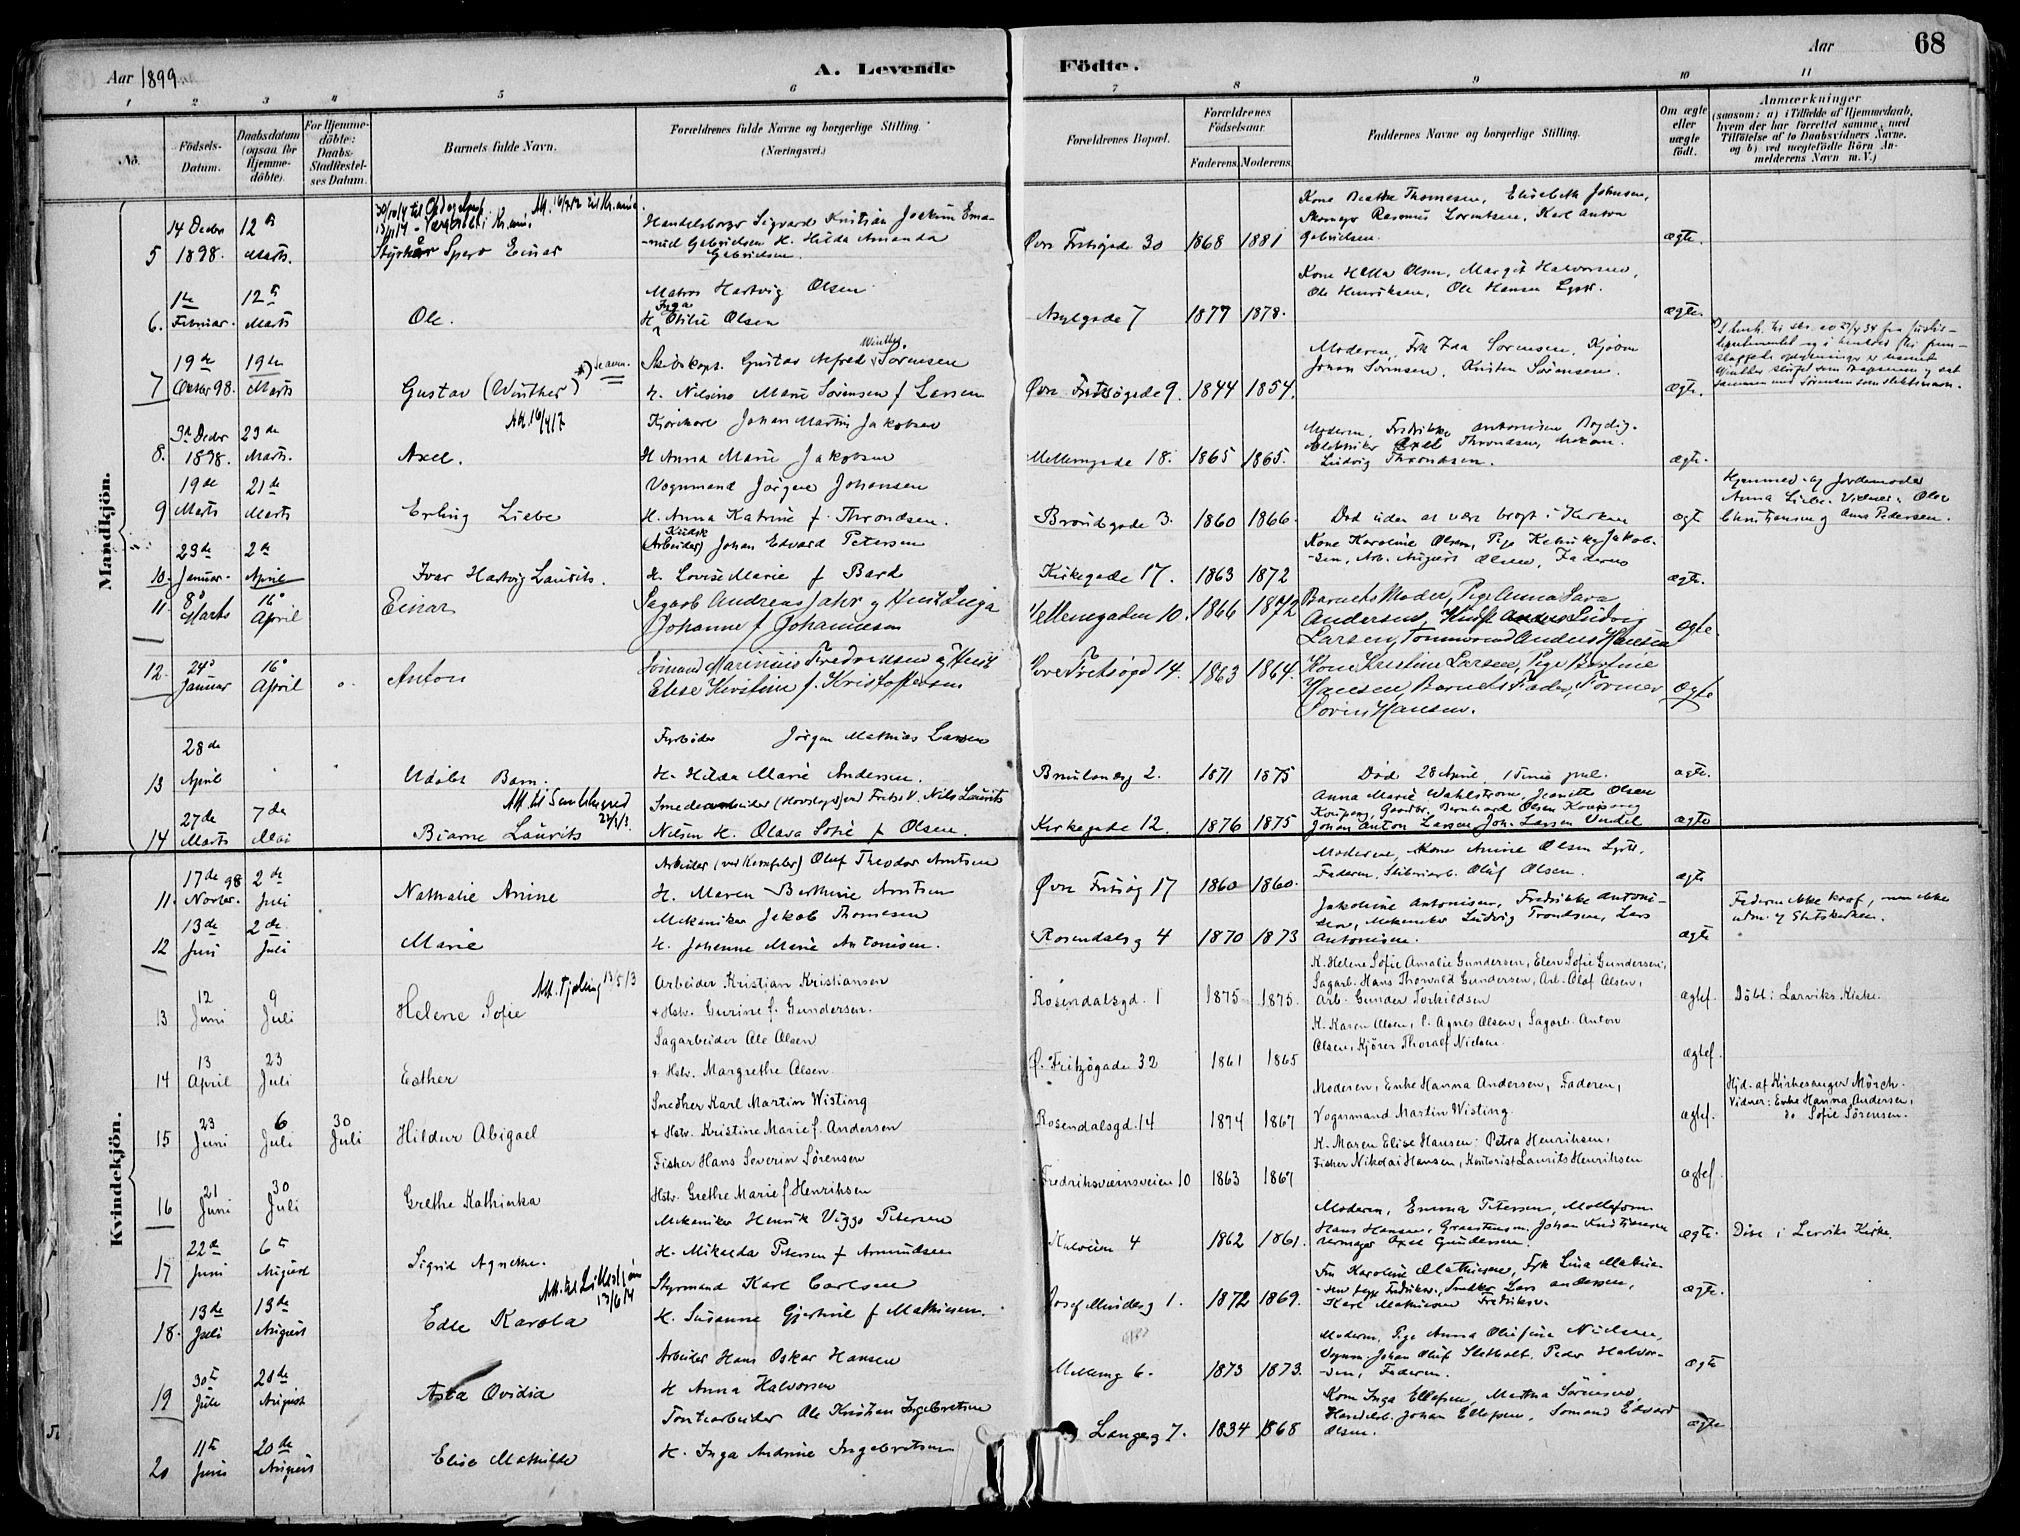 Aar 1899
A. Levende
Födte.
Aar
68
1 2 3 4 5 6 7 8 9 10 11
No.
Födsels-
Datum.
Daabsdatum
(ogsaa for
Hjemme-
döbte).
For Hjemme-
döbte:
Daabs-
Stadfæstel-
ses Datum.
Barnets fulde Navn.
Forældrenes fulde Navne og borgerlige Stilling.
(Næringsvei.)
Forældrenes Bopæl.
Forældrenes
Födselsaar.
Faderens. Moderens.
Faddernes Navne og borgerlige Stilling.
Om ægte
eller
uægte
födt.
Anmærkninger
(saasom: a) i Tilfælde af Hjemmedaab,
hvem der har forrettet samme, med
Tilföielse af to Daabsvidners Navne.
og b) ved uægtefödte Börn An-
melderens Navn m. V.)
Mandkjön.
14 Decbr 12te
5 1898. Marts.
Einar
Handelsborger Sigvard Kristian Joakim Ema-
-nuel Gabrielsen H. Hilda Amanda
Gabrielsen.
Øvre Fritsøgade 30 1868 1881
Kone Beathe Thomesen, Elisabeth Johnsen,
Skomager Rasmus Lorentsen, Karl Anton
Gabrielsen.
ægte.
1ste 12te
6. Februar. Marts
Ole.
Matros Hartvig Olsen
Inga
H. Otilie Olsen
Asylgade 7 1877 1878.
Kone Helga Olsen, Margit Halvorsen,
Ole Henriksen, Ole Hansen
ægte
19de 19de
7 Oktbr 98. Marts
Gustav (Winther)
Winther
Skibskapt. Gustav Alfred Sørensen
H. Nilsine Marie Sørensen f Larsen
Øvre Fritsøgade 9. 1844 1854.
Moderen, Frk Ida Sørensen, Kjøbm
Johan Sørensen, Kristen Sørensen.
ægte.
3die Decbr 23de
8. 1898. Marts.
Axel.
Kjørekarl Johan Martin Jakobsen
H Anna Marie Jakobsen
Mellemgade 18. 1865 1865.
Moderen, Fredrikke Antonisen
Axel Throndsen, Mekan.
Ludvig Throndsen.
ægte.
19de 21de
9 Marts Marts
Erling Liebe
Vognmand Jørgen Johansen
H. Anna Katrine f. Throndsen.
3. 1860 1866.
Død uden at være bragt i Kirken
ægte
Hjemmed. af Jordemoder
Anna Liebe. Vidner: Olea
Christiansen og Anna Pedersen.
23de 2de
10. Januar. April
Ivar Hartvig Laurits.
Kudsk
(Arbeider) Johan Edvard Petersen
H. Lovise Marie f Bard
Kirkegade 17. 1863 1872
Kone Karoline Olsen, Pige Jakob-
-sen, Arb. August Olsen, Faderen
ægte.
8de 16de
11. Marts April
Einar
Sagarb Andreas Jahr og Hust Inga
Johanne f Johannesen
Mellemgaden 10. 1866 1872
Barnets Moder, Pige Anna Lara
Andersen, Anders Ludvig
Larsen, Tømmermand Anders Hansen
ægte.
24de 16de
12. Januar April
Anton
Sømand Marinius Fredriksen og Hust
Elise Kirstine f. Kristoffersen
Øvre Fritsøgd 14. 1863 1864.
Kone Kristine Larsen, Pige Bertine
Hansen, Barnets Fader, Former
Søren Hansen.
ægte
28de
13 April
Udøbt Barn.
Fyrbøder Jørgen Mathias Larsen
H. Hilda Marie Andersen.
2. 1871 1875
Død 28 April, 1 Time gml.
ægte.
27de 7de
14 Marts Mai
Bjarne Laurits
Nils Laurits
Nilsen H. Olava Sofie f Olsen.
Kirkegade 12. 1876 1875
Anna Marie Wahlstrøm, Jeanette Olsen
Bernhard Olsen
Johan Anton Larsen Joh. Larsen Vindel
ægte
Kvindekjön.
17de 98 2de
11. Novbr. Juli
Nathalie Anine
Arbeider Oluf Theodor Arntsen
H. Maren Berthine Arntsen
Øvre Fritsøg 17 1860 1860.
Moderen, Kone Anine Olsen
Faderen, Oluf Olsen.
ægte
13de 2de
12 Juni Juli
Marie
Mekaniker Jakob Thomesen
H. Johanne Marie Antonisen.
Rosendalsg 4 1870 1873
Jakobine Antonisen, Fredrikke Antoni-
sen, Mekaniker Ludvig Trondsen, Lars
Antonisen.
ægte
Faderen ikke konf., men ikke
udm. af Statskirken.
12 9
13 Juni Juli
Helene Sofie
Att. Tjølling 13/5 13
Arbeider Kristian Kristiansen
& Hstr. Gurine f. Gundersen.
Rosendalsgd. 1 1875 1875.
K. Helene Sofie Amalie Gundersen, Elen Sofie Gundersen,
Sagarb. Hans Thorvald Gundersen, Arb. Olaf Olsen,
Arb. Gunder Torkildsen
ægtef.
Døbt i Larviks Kirke.
13 23
14 April Juli
Esther
Sagarbeider Ole Olsen
& Hstr. Margrethe Olsen
Ø. Fritzøgade 32 1861 1865
K. Karen Olsen, P. Agnes Olsen, Sagarb. Anton
Olsen, Kjører Thoralf Nielsen
ægtef.
23 6 30
15 Juni Juli Juli
Hildur Abigael
Snedker Karl Martin Wisting
& Hstr. Kristine Marie f. Andersen
Rosendalsgd. 14 1874 1867
Moderen, Enke Hanna Andersen, Faderen,
Vognmand Martin Wisting.
ægtef.
Hjd. af Kirkesanger Mörch.
Vidner: Enke Hanna Andersen,
do Sofie Sørensen.
21 30
16 Juni Juli
Grethe Kathinka
Fisker Hans Severin Sørensen
Hstr. Grethe Marie f Henriksen
Fredriksværnsveien 10 1863 1867
K. Maren Elise Hansen. Petra Henriksen,
Fisker Nikolai Hansen, Kontorist Laurits Henriksen
ægtef.
22de 6te
17 Juni August
Sigrid Agnethe.
Mekaniker Henrik Viggo Petersen
H. Mikalda Petersen f Amundsen
Kalveien 4 1862 1861.
Moderen, Emma Petersen,
Hans Hansen, Johan Kristiansen
Axel Gundersen.
ægte.
Døbt i Larviks Kirke.
13de 13de
18. Juli August
Edle Karola
Styrmand Karl Carlsen
H. Susanne Gjertine f Mathisen.
1. 1872 1869.
Fru Karoline Mathiesen, Frk Lina Mathie-
Snedker Lars Andersen,
Karl Mathiesen
ægte.
30te 20de
19 Juli August
Asta Ovidia
Arbeider Hans Oskar Hansen
H Anna Halvorsen
Mellemg 6. 1873 1873.
Moderen, Pige Anna Olefine Nielsen,
Vognm. Johan Oluf Slettholt, Peder Halvor-
sen, Faderen.
ægte
11te 20de
20 Juni August
Elise Mathilde
Tomtearbeider Ole Kristian Ingebretsen
H. Inga Andrine Ingebretsen
Langesg 7. 1834 1868
Kone Inga Ellefsen, Martha Sørensen,
Handelsb. Johan Ellefsen, Sømand Edvard
Olsen.
ægte